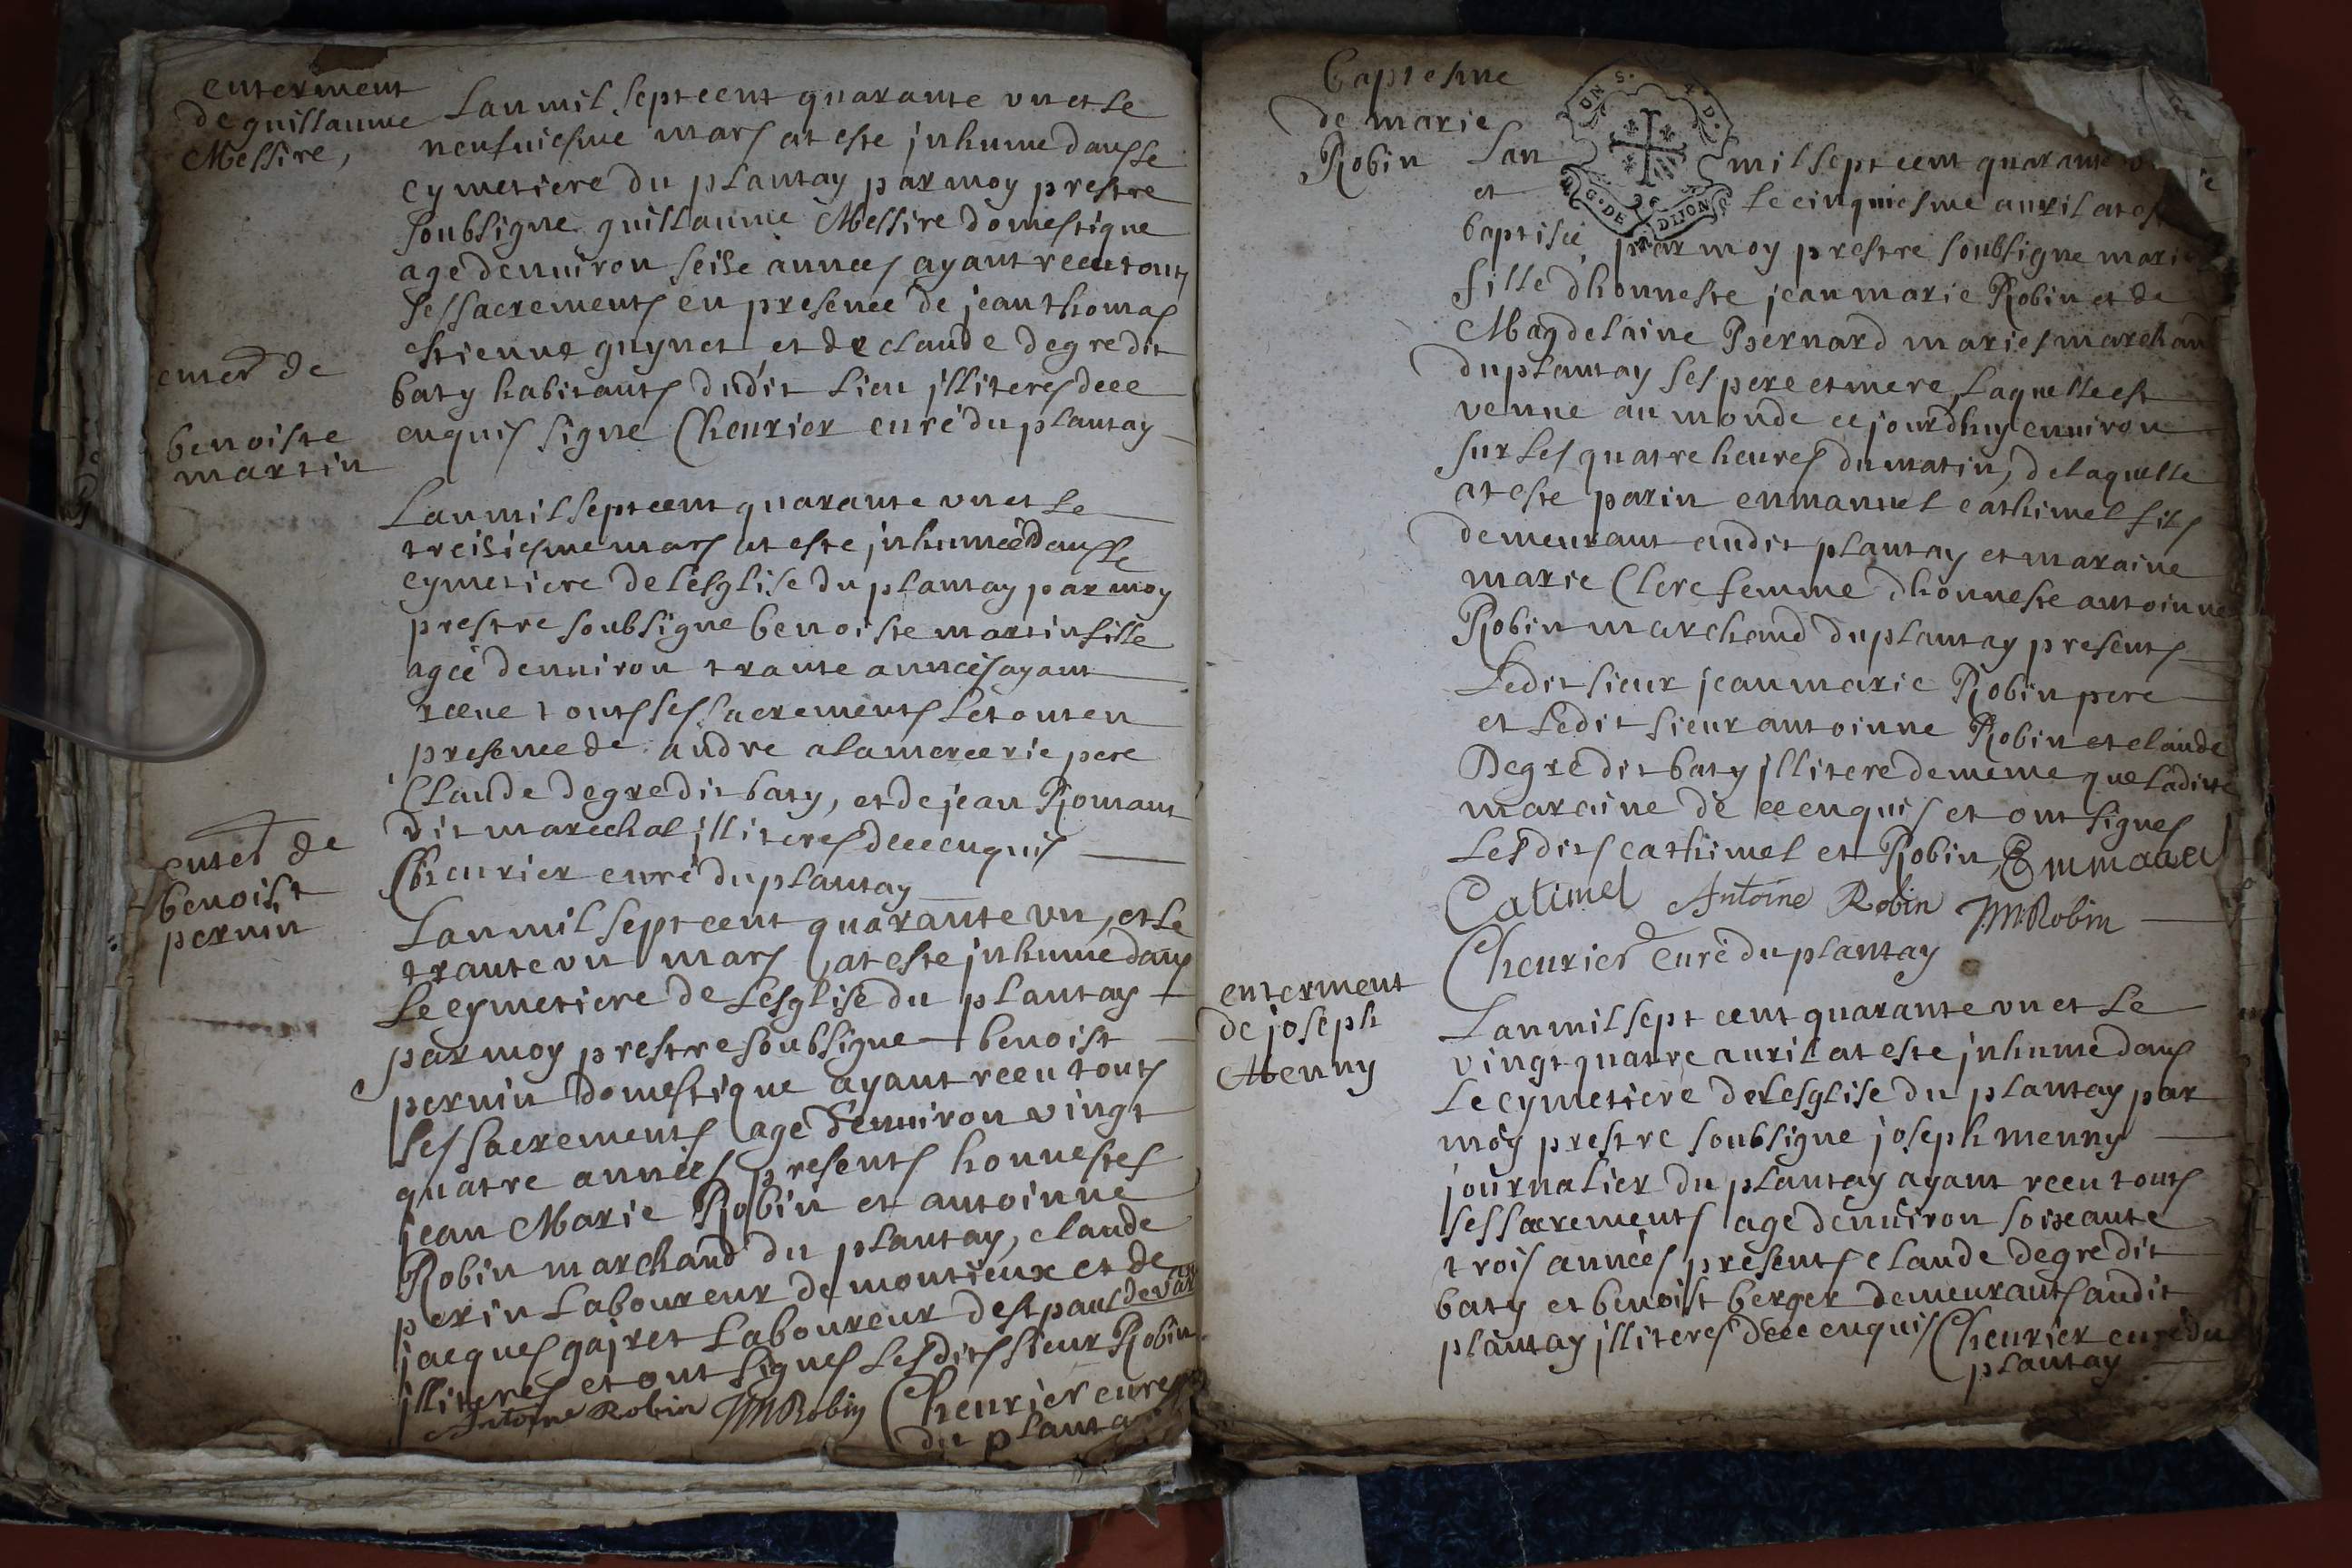 enterment
de guillaume
Messire,
Lan mil sept cent quarante un et le
neufuiesme mars at este jnhume dans le
cymetiere du plantay par moy prestre
soubsigne guillaume Messire domestique
agé denuiron seise années ayant receu touts
ses sacrements en presence de jean thomas
estienne guynet et de claude degre dit
baty habitants dudit lieu jlliteres de ce
enquis signe Cheurier curé du plantay
enter de
benoiste
martin
Lan mil sept cent quarante un et le
treisiesme mars at este jnhumeé dans le
cymetiere de lesglise du plantay par moy
prestre soubsigne benoiste martin fille
ageé denuiron trante années ayant
receue touts ses sacrements le tout en
presence de andre alamercerie pere
Claude degre dit baty, et de jean Romant
dit marechal jlliteres de ce enquis
Cheurier curé du plantay
enter de
benoist
pernin
Lan mil sept cent quarante un, et le
trante un mars at este jnhume dans
le cymetiere de lesglise du plantay
par moy prestre soubsigne benoist
pernin domestique ayant receu touts
ses sacrements age denuiron vingt
quatre années presents honnestes
jean Marie Robin et antoinne
Robin marchand du plantay, claude
perin laboureur de montieux et de
jacques gajret laboureur de st paul de varax
jlliteres et ont signes lesdits sieur Robin
Antoine Robin JMRobin Cheurier curé
du plantay
baptesme
de marie
Robin
UN S. A. D.
G. DE DIJON
Lan mil sept cent quarante
et le cinquiesme auril at este
baptisée par moy prestre soubsigne marie
fille dhonneste jean marie Robin et de
Magdelaine Bernard maries marchand
du plantay ses pere et mere, laquelle est
venue au monde ce jourdhuy enuiron
sur les quatre heures du matin, de laquelle
at este parin enmanuel cathimel fils
demeurant audit plantay et maraine
marie Clerc femme dhonneste antoinne
Robin marchand du plantay presents
Ledit sieur jean marie Robin pere
et ledit sieur antoinne Robin et claude
Degre dit baty jllitere de meme que ladite
maraine de ce enquis et ont signes
lesdits cathimel et Robin, Emmanuel
Catimel Antoine Robin JMRobin
Cheurier curé du plantay
enterment
de joseph
Menny
Lan mil sept cent quarante un et le
vingt quatre auril at este jnhumé dans
le cymetiere de lesglise du plantay par
moy prestre soubsigne joseph menny
journalier du plantay ayant receu touts
ses sacrements age denuiron soixante
trois années presents claude degre dit
baty et benoist berger demeurants audit
plantay jlliteres de ce enquis Cheurier curé du
plantay